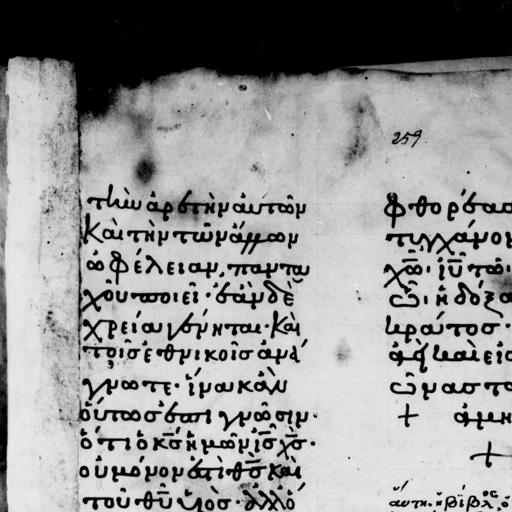 259
τὴν ἀρετὴν αὐτῶν
καὶ τὴν τῶν ἄλλων
ὠφέλειαν, παντα
χοῦ ποιεῖ· ἐὰν δὲ
χρεία γένηται· καὶ
τοῖς ἐθνικοῖς ἀνα
γνωτε· ἵνα κἂν
οὕτως ἐπιγνῶσιν·
ὅτι ὁ κς̄ ἡμῶν ις̄ χς̄·
οὐ μόνον ἐστὶ θς̄ καὶ
τοῦ θῡ ὑιὸς· ἀλλ
φθορέας
τυγχάνον
χω̄· ιῡ τῶ·
ὧ· ἡ δόξα
κράτος·
καὶ εἰς
ὧνας τῶ
+ ἀμη
+
αὕτη· ἡ βίβλος